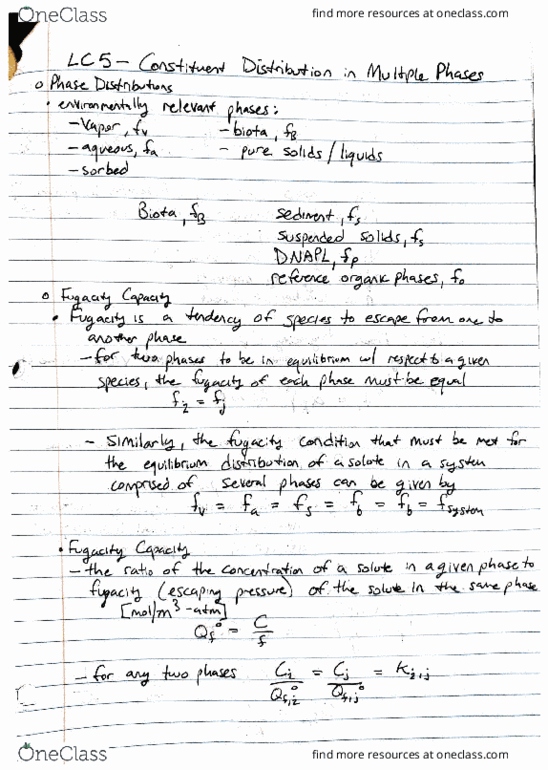 OneClass find more resources at oneclass.com
LC5 - Constituent Distribution in Multiple Phases
o Phase Distributions
• environmentally relevant phases:
- Vapor, fv - biota, fB
- aqueous, fa - pure solids / liquids
- sorbed
Biota, fB sediment, fs
suspended solids, fs
DNAPL, fp
reference organic phases, fo
o Fugacity Capacity
• Fugacity is a tendency of species to escape from one to
another phase
- for two phases to be in equilibrium w/ respect to a given
species, the fugacity of each phase must be equal
fi = fj
- Similarly, the fugacity condition that must be met for
the equilibrium distribution of a solute in a system
comprised of several phases can be given by
fv = fa = fs = fb = fb = fsystem
• Fugacity Capacity
- the ratio of the concentration of a solute in a given phase to
fugacity (escaping pressure) of the solute in the same phase
[mol/m³-atm]
Qf° = C/f
- for any two phases Ci/Qf,i° = Cj/Qf,j° = Ki,j
OneClass find more resources at oneclass.com